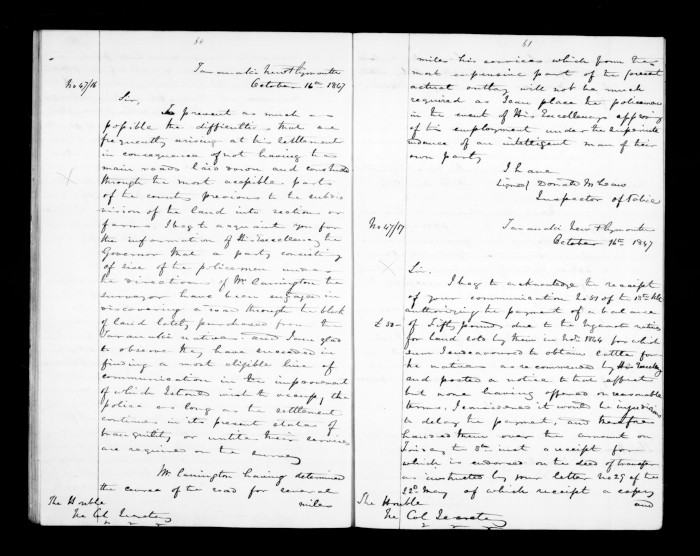 60
Taranaki New Plymouth
October 16th 1847
No 47/16
Sir,
To prevent as much as
possible the difficulties that are
frequently arising at this settlement
in consequence of not having the
main roads laid down and constructed
through the most accessible parts
of the country previous to the subdi
vision of the land into sections or
farms. I beg to acquaint you for
the information of His Excellency the
Governor that a party consisting
of six of the policemen under
the directions of Mr Carrington the
surveyor have been engaged in
discovering a road through the block
of land lately purchased from the
Taranaki natives and I am glad
to observe they have succeeded in
finding a most eligible line of
communication in the improvement
of which I should wish to occupy the
police as long as the settlement
continues in its present state of
tranquility, or until their services
are required on the survey
Mr Carrington having determined
the course of the road for several
The Honble
The Col Secretary
miles
61
miles his services which form the
most expensive part of the present
actual outlay will not be much
required as I can place the policemen
in the event of His Excellency approving
of his employment under the superinte
ndance of an intelligent man of their
own party
I have
Signed Donald McLean
Inspector of Police
No 47/17
Taranaki New Plymouth
October 16th 1847
Sir,
I beg to acknowledge the receipt
of your communication No 51 of the 13th
authorizing the payment of a balance
£50
of Fifty pounds due to the natives
for land sold by them in 1844 for which
sum I endeavoured to obtain cattle for
the natives as recommended by His Excellency
and posted a notice to that effect
but none having offered on reasonable
terms, I considered it would be injudicious
to delay the payment, and therefore
handed them over the amount on
Friday the 8th inst a receipt for
which is endorsed on the deed of transfer
as instructed by your letter No 29 of the
22d May of which receipt a copy
The Honble
The Col Secretary
and